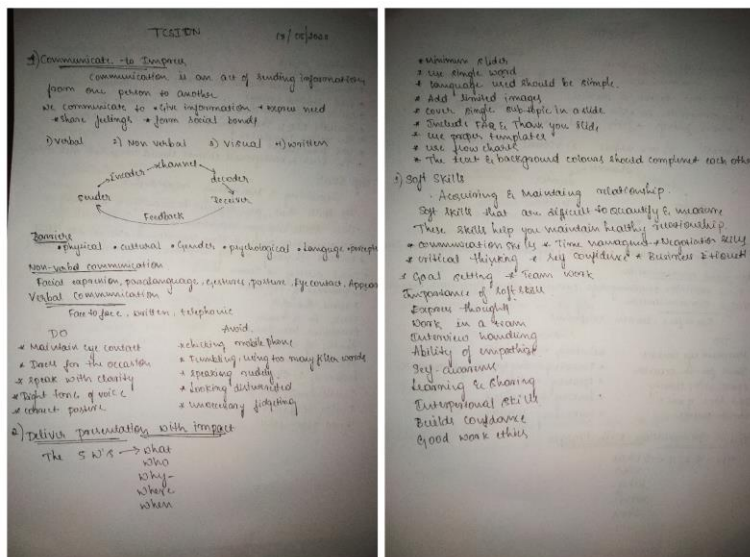 TCSION
1) Communicate to Impress
Communication is an act of sending information
from one person to another
We communicate to • Give information • express need
• share feelings • form social bonds
1) verbal 2) Non verbal 3) Visual 4) written
channel
Encoder decoder
Sender Receiver
Feedback
Barriers
• Physical • cultural • Gender • psychological • Language
Non-verbal communication
Facial expression, paralanguage, gestures, posture, Eye contact,
Verbal Communication
Face to face, written, telephonic
DO
* Maintain eye contact
* Dress for the occasion
* speak with clarity
* Right tone of voice
* correct posture
Avoid
* checking mobile phone
* Fumbling, using too many filler words
* speaking rudely
* Looking disinterested
* unnecessary fidgeting
2) Deliver presentation with impact
The 5 W's → what
who
why
where
when
* Minimum slides
* use single word
* Language used should be simple.
* Add limited images
* cover single subtopic in a slide
* Include FAQ & Thank you slide
* use proper templates
* use flow charts
* The text & background colours should complement each other
3) Soft Skills
Acquiring & Maintaing relationship.
Soft skills that are difficult to quantify & measure
These skills help you maintain healthy relationship.
* communication skills * Time * Negotiation skills
* critical thinking * self confidence * Business
* Goal setting * Team work
Importance of soft skills
Express thoughts
Work in a team
Interview handling
Ability of
Self-
Learning & sharing
Interpersonal skills
Builds confidence
Good work ethics